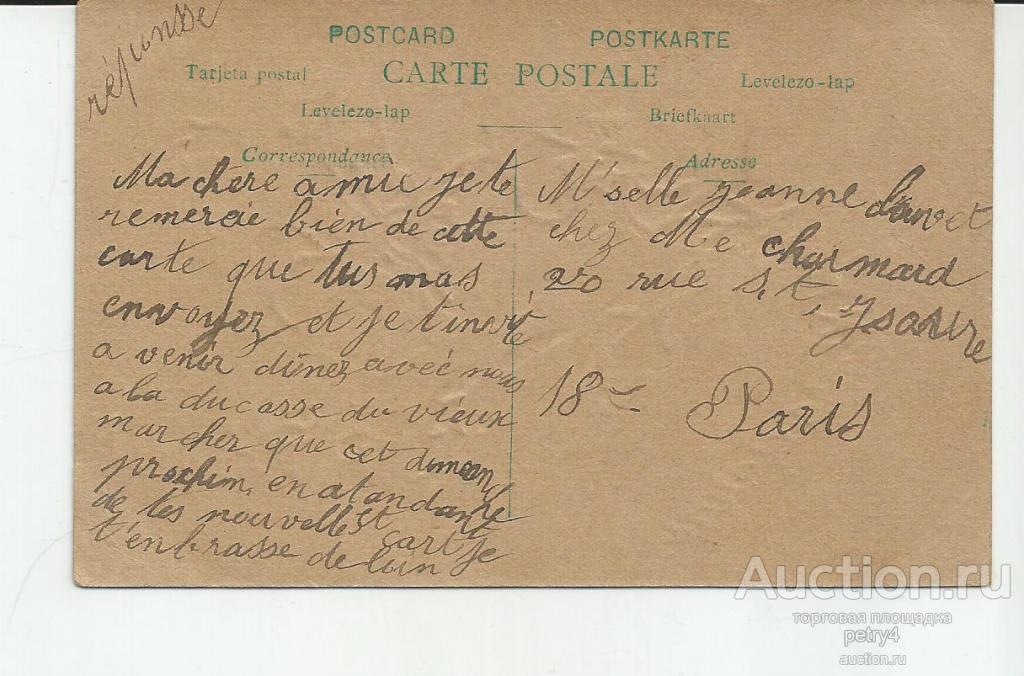 réponsse
POSTCARD POSTKARTE
Tarjeta postal CARTE POSTALE Levelezo-lap
Levelezo-lap Briefkaart
Correspondance Adresse
Ma chere amie je te
remercie bien de cette
carte que tus mas
envoyez et je t'invite
a venir dinez avec nous
a la ducasse du vieux
marcher que cet dimanche
prochim, en atandant
de tes nouvelles cart je
t'enbrasse de loin
M'selle Jeanne
chez Me Charmard
20 rue St, Ysaure
18
Paris
Auction.ru
торговая площадка
petry4
auction.ru